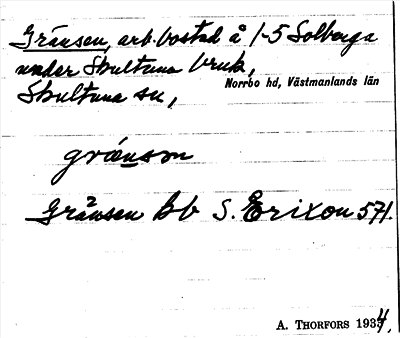 Gränsen, arb. bostad å 1-5 Solberga
under Skultuna bruk,
Norrbo hd, Västmanlands län
Skultuna sn,
grǽnsṃ
Gränsen Bb S. Erixon 571.
A. THORFORS 1934.